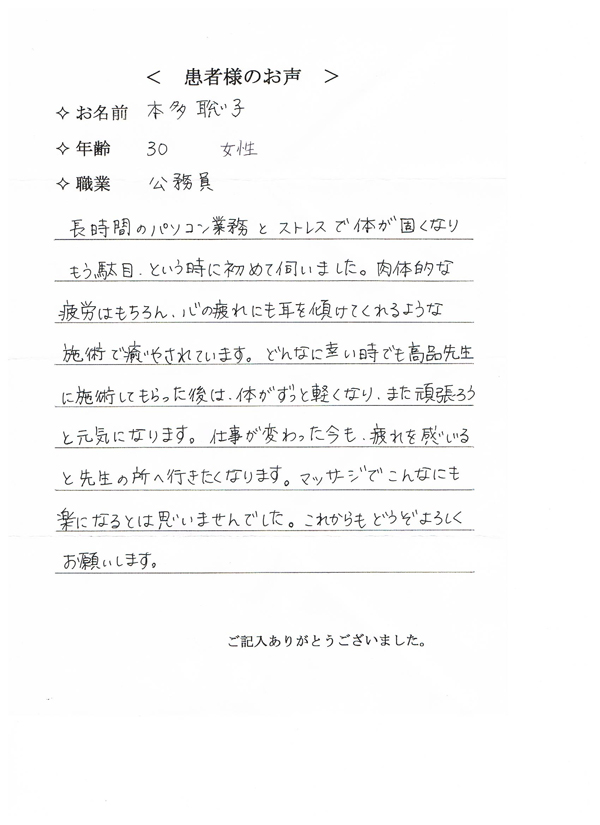 ＜ 患者様のお声 ＞
✧お名前 本多 聡子
✧年齢 30 女性
✧職業 公務員
長時間のパソコン業務とストレスで体が固くなり
もう駄目、という時に初めて伺いました。肉体的な
疲労はもちろん、心の疲れにも耳を傾けてくれるような
施術で癒やされています。どんなに辛い時でも高品先生
に施術してもらった後は、体がずっと軽くなり、また頑張ろう
と元気になります。仕事が変わった今も、疲れを感じいる
と先生の所へ行きたくなります。マッサージでこんなにも
楽になるとは思いませんでした。これからもどうぞよろしく
お願いします。
ご記入ありがとうございました。